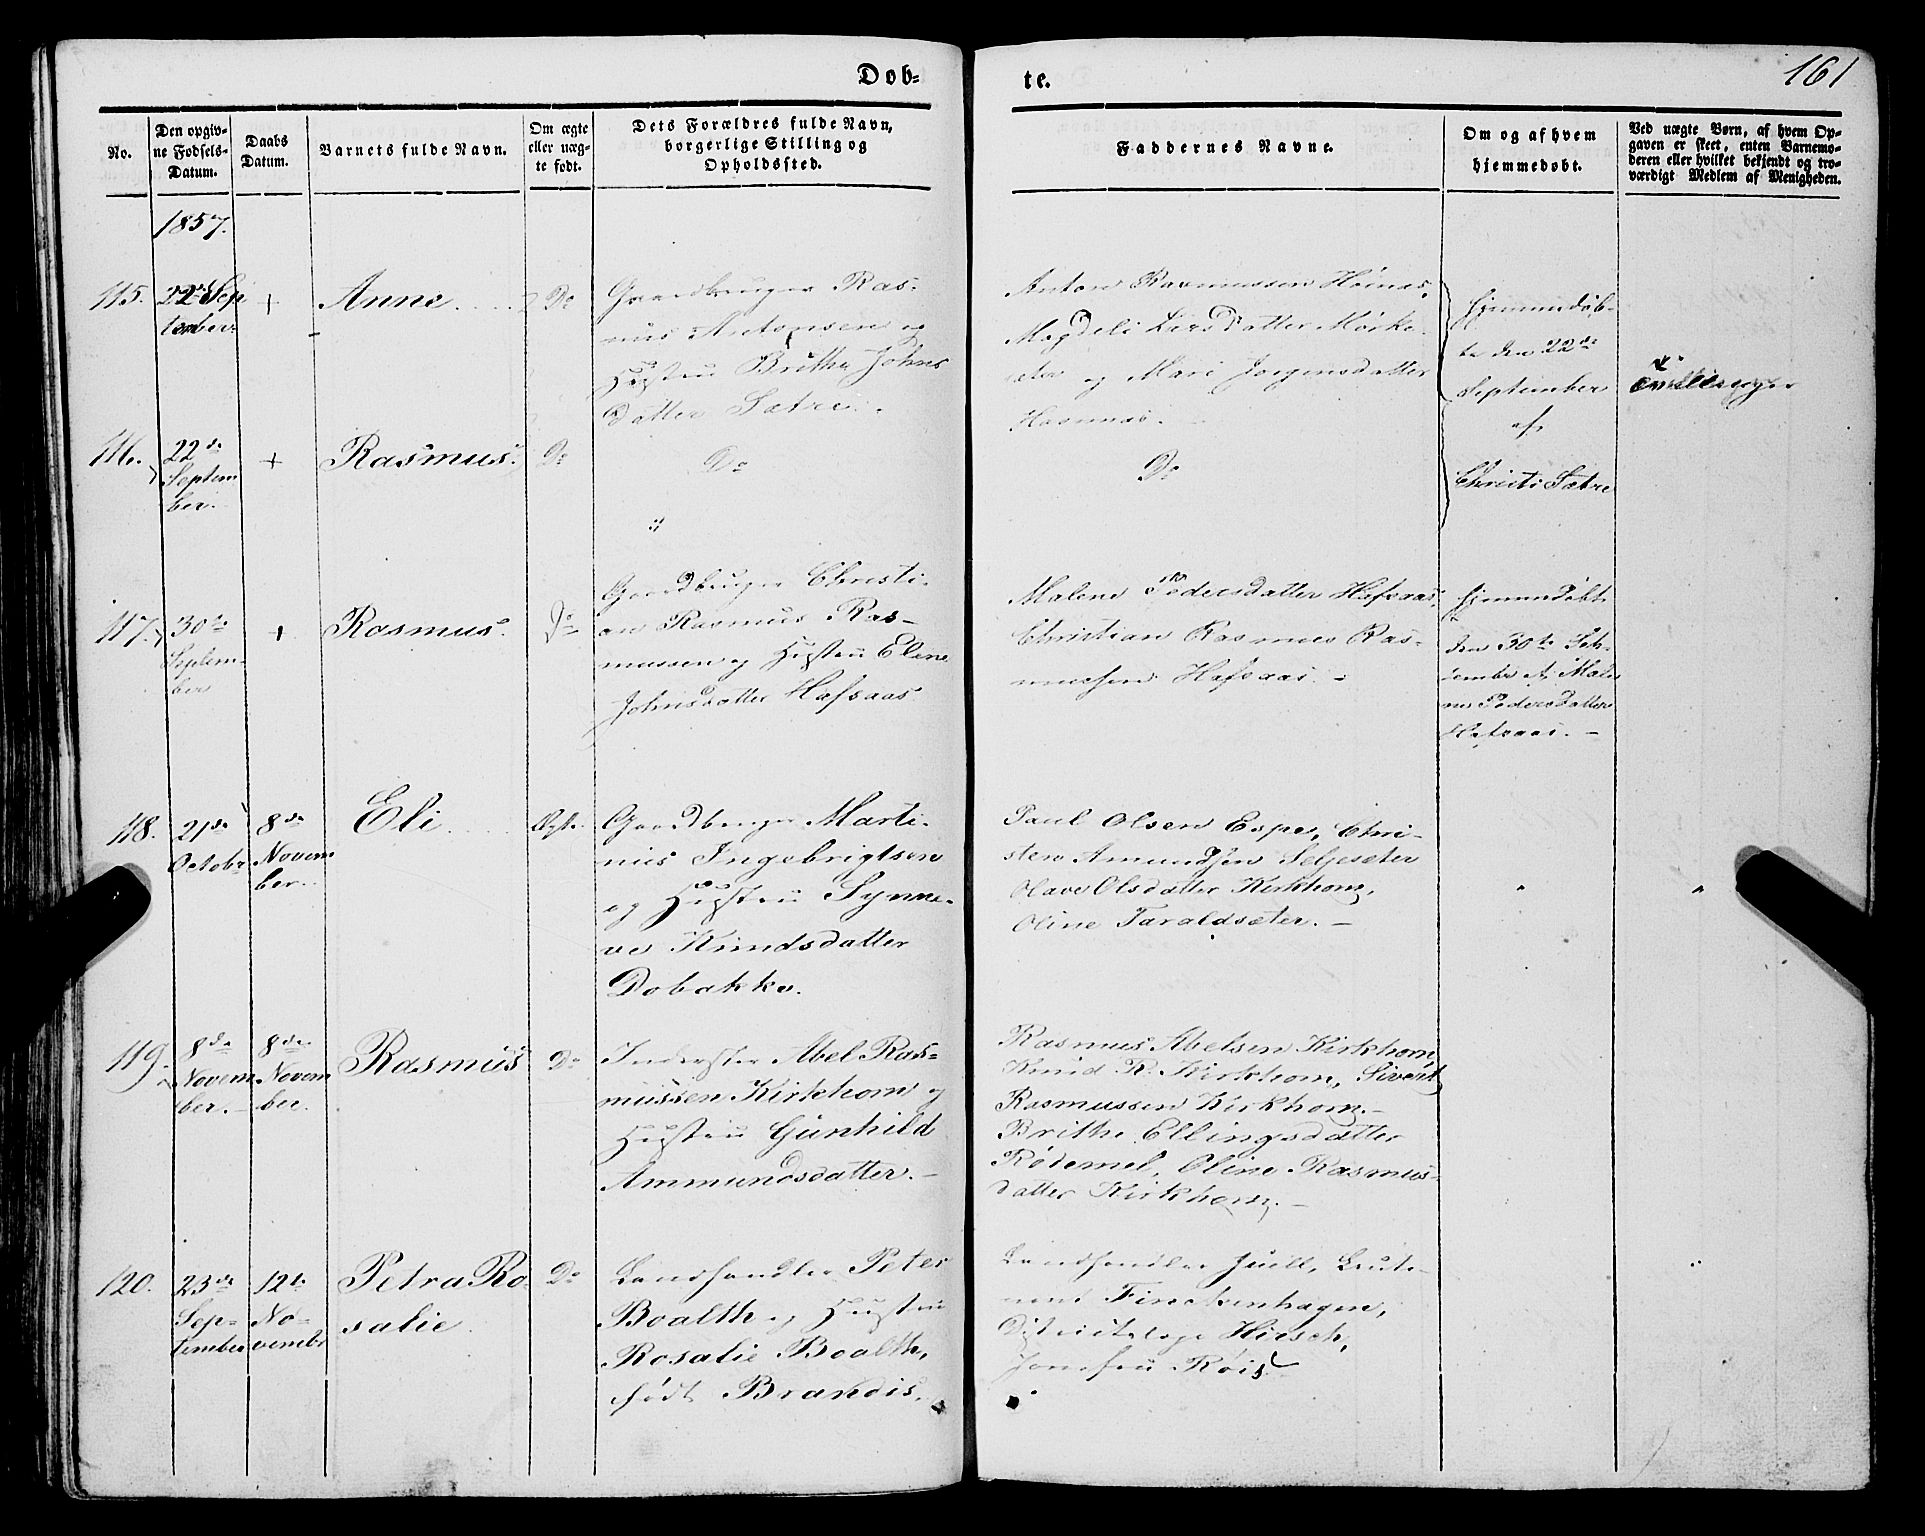 Dob-
te.
161
No.
Den opgiv-
ne Fødsels-
Datum.
Daabs
Datum.
Varnets fulde Navn.
Om ægte
eller uæg-
te født.
Dets Forældres fulde Navn,
borgerlige Stilling og
Opholdssted.
Faddernes Navne.
Om og af hvem
hjemmedobt.
Ved uægte Børn, af hvem Op-
gaven er skeet, enten Barnemo-
deren eller hvilket bekjendt og tro-
værdigt Medlem af Menigheden.
1857.
115.
22de Sep
tember
+
Anne
Do
Gaardbruger Ras-
mus Antonsen og
Hustru Brithe Johns
datter Sætre.
Anton Rasmussen Hoinæs,
Magdeli Larsdatter Mørke-
sæter og Mari Jorgensdatter
Hasnæs.
hjemmedøb-
te den 22de
September
af
Christi Sætre
Tvillinger
116.
22de
Septem
ber.
+
Rasmus.
Do
Do
Do
117.
30te
Septem-
ber
+
Rasmus.
Do
Gaardbruger Christi-
an Rasmus Ras-
mussen og Hustru Eline
Johnsdatter Hafsaas
Malene Pedersdatter Hafsaas,
Christian Rasmus Ras-
mussen Hafsaas. -
hjemmedøbt
den 30te Sep-
tember af Male
ne Pedersdatter
Hafsaas. -
118.
21de
Octobr
8de
Novem
ber.
Eli
Ægte
Gaardbruger Marti-
nus Ingebrigtsen
og Hustru Synne-
ve Knudsdatter
Dobakke.
Paul Olsen Espe, Chri-
sten Amundsen Seljesæter
Olave Olsdatter Kirkhorn,
Oline Taraldsæter. -
119.
8de
Novem
ber. -
8de
Novem
ber.
Rasmus
Do
Inderster Abel Ras-
mussen Kirkhorn og
Hustru Gunhild
Ammundsdatter. -
Rasmus Abelsen Kirkhorn,
Knud R. Kirkhorn, Sivert
Rasmussen Kirkhorn. -
Brithe Ellingsdatter
Rødemel, Oline Rasmus-
datter Kirkhorn. -
120.
23de
Sep-
tember
12te
No-
vember
Petra Ro-
salie
Do
Landhandler Peter
Boalth og Hustru
Rosalie Boalth,
født Brandis.
Landhandler Juell, Leute-
nant Finckenhagen,
Districtslæge Hirsch,
Jomfru Röis